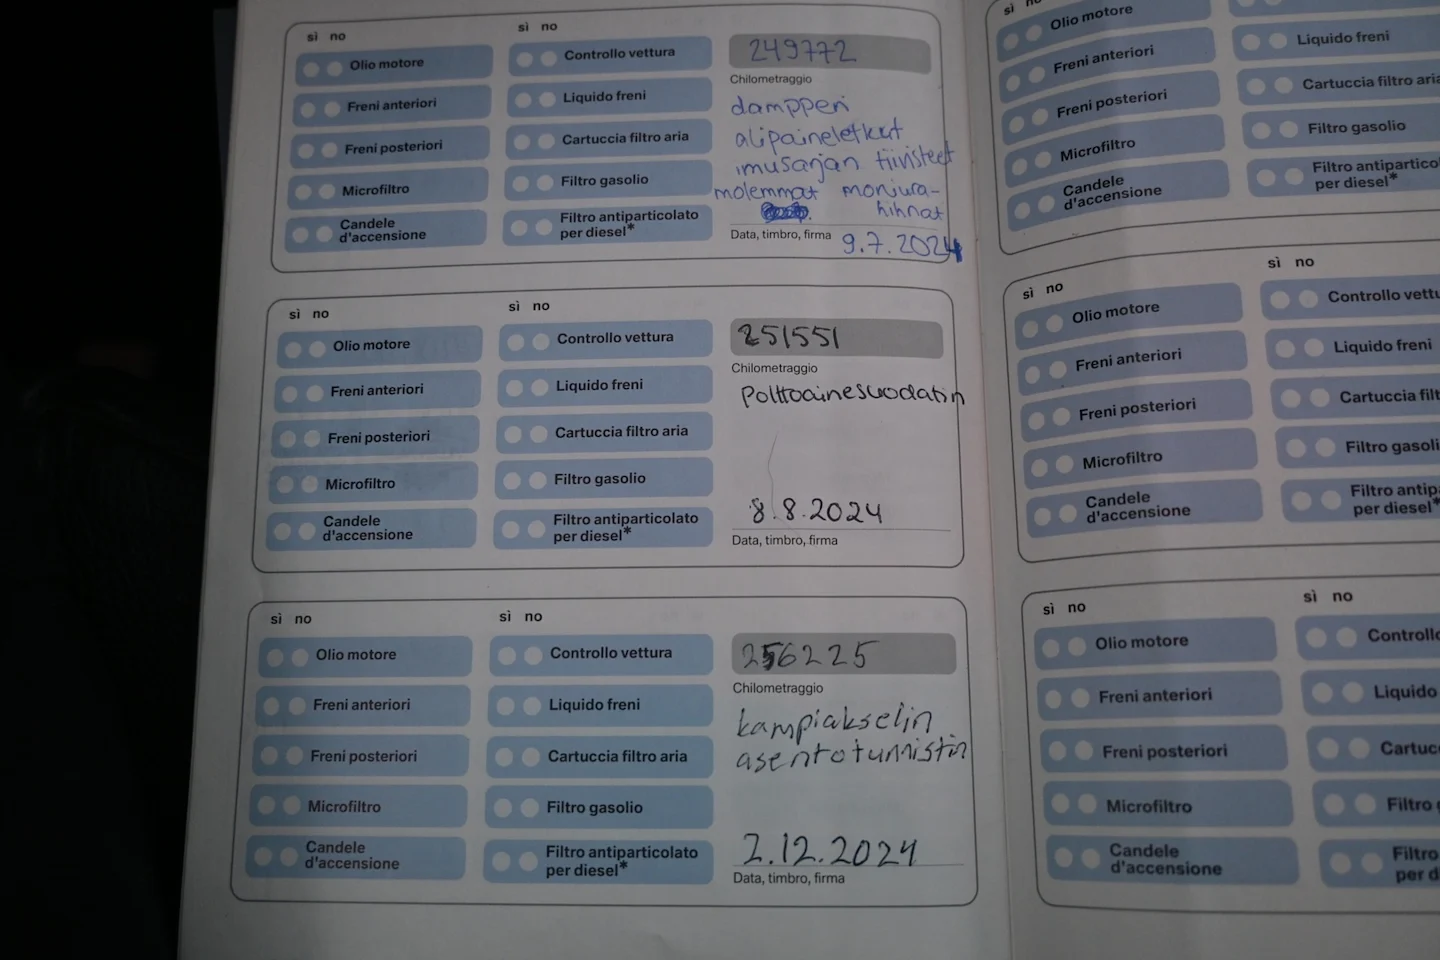 sì no
sì no
Olio motore
Controllo vettura
249772
Chilometraggio
Freni anteriori
Liquido freni
damppen
Freni posteriori
Cartuccia filtro aria
alipaineletkut
imusarjan tiivisteet
Microfiltro
Filtro gasolio
molemmat moniura-
hihnat
Candele
d'accensione
Filtro antiparticolato
per diesel*
Data, timbro, firma 9.7.2024
sì no
sì no
Olio motore
Controllo vettura
251551
Chilometraggio
Freni anteriori
Liquido freni
Polttoainesuodatin
Freni posteriori
Cartuccia filtro aria
Microfiltro
Filtro gasolio
Candele
d'accensione
Filtro antiparticolato
per diesel*
8.8.2024
Data, timbro, firma
sì no
sì no
Olio motore
Controllo vettura
256225
Chilometraggio
Freni anteriori
Liquido freni
kampiakselin
asentotunnistin
Freni posteriori
Cartuccia filtro aria
Microfiltro
Filtro gasolio
Candele
d'accensione
Filtro antiparticolato
per diesel*
2.12.2024
Data, timbro, firma
sì no
Olio motore
Freni anteriori
Liquido freni
Freni posteriori
Cartuccia filtro aria
Microfiltro
Filtro gasolio
Candele
d'accensione
Filtro antipartico
per diesel*
sì no
sì no
Olio motore
Controllo vettu
Freni anteriori
Liquido freni
Freni posteriori
Cartuccia filt
Microfiltro
Filtro gasoli
Candele
d'accensione
Filtro antip
per diesel*
sì no
sì no
Olio motore
Controllo
Freni anteriori
Liquido
Freni posteriori
Cartuc
Microfiltro
Filtro
Candele
d'accensione
Filtro
per d